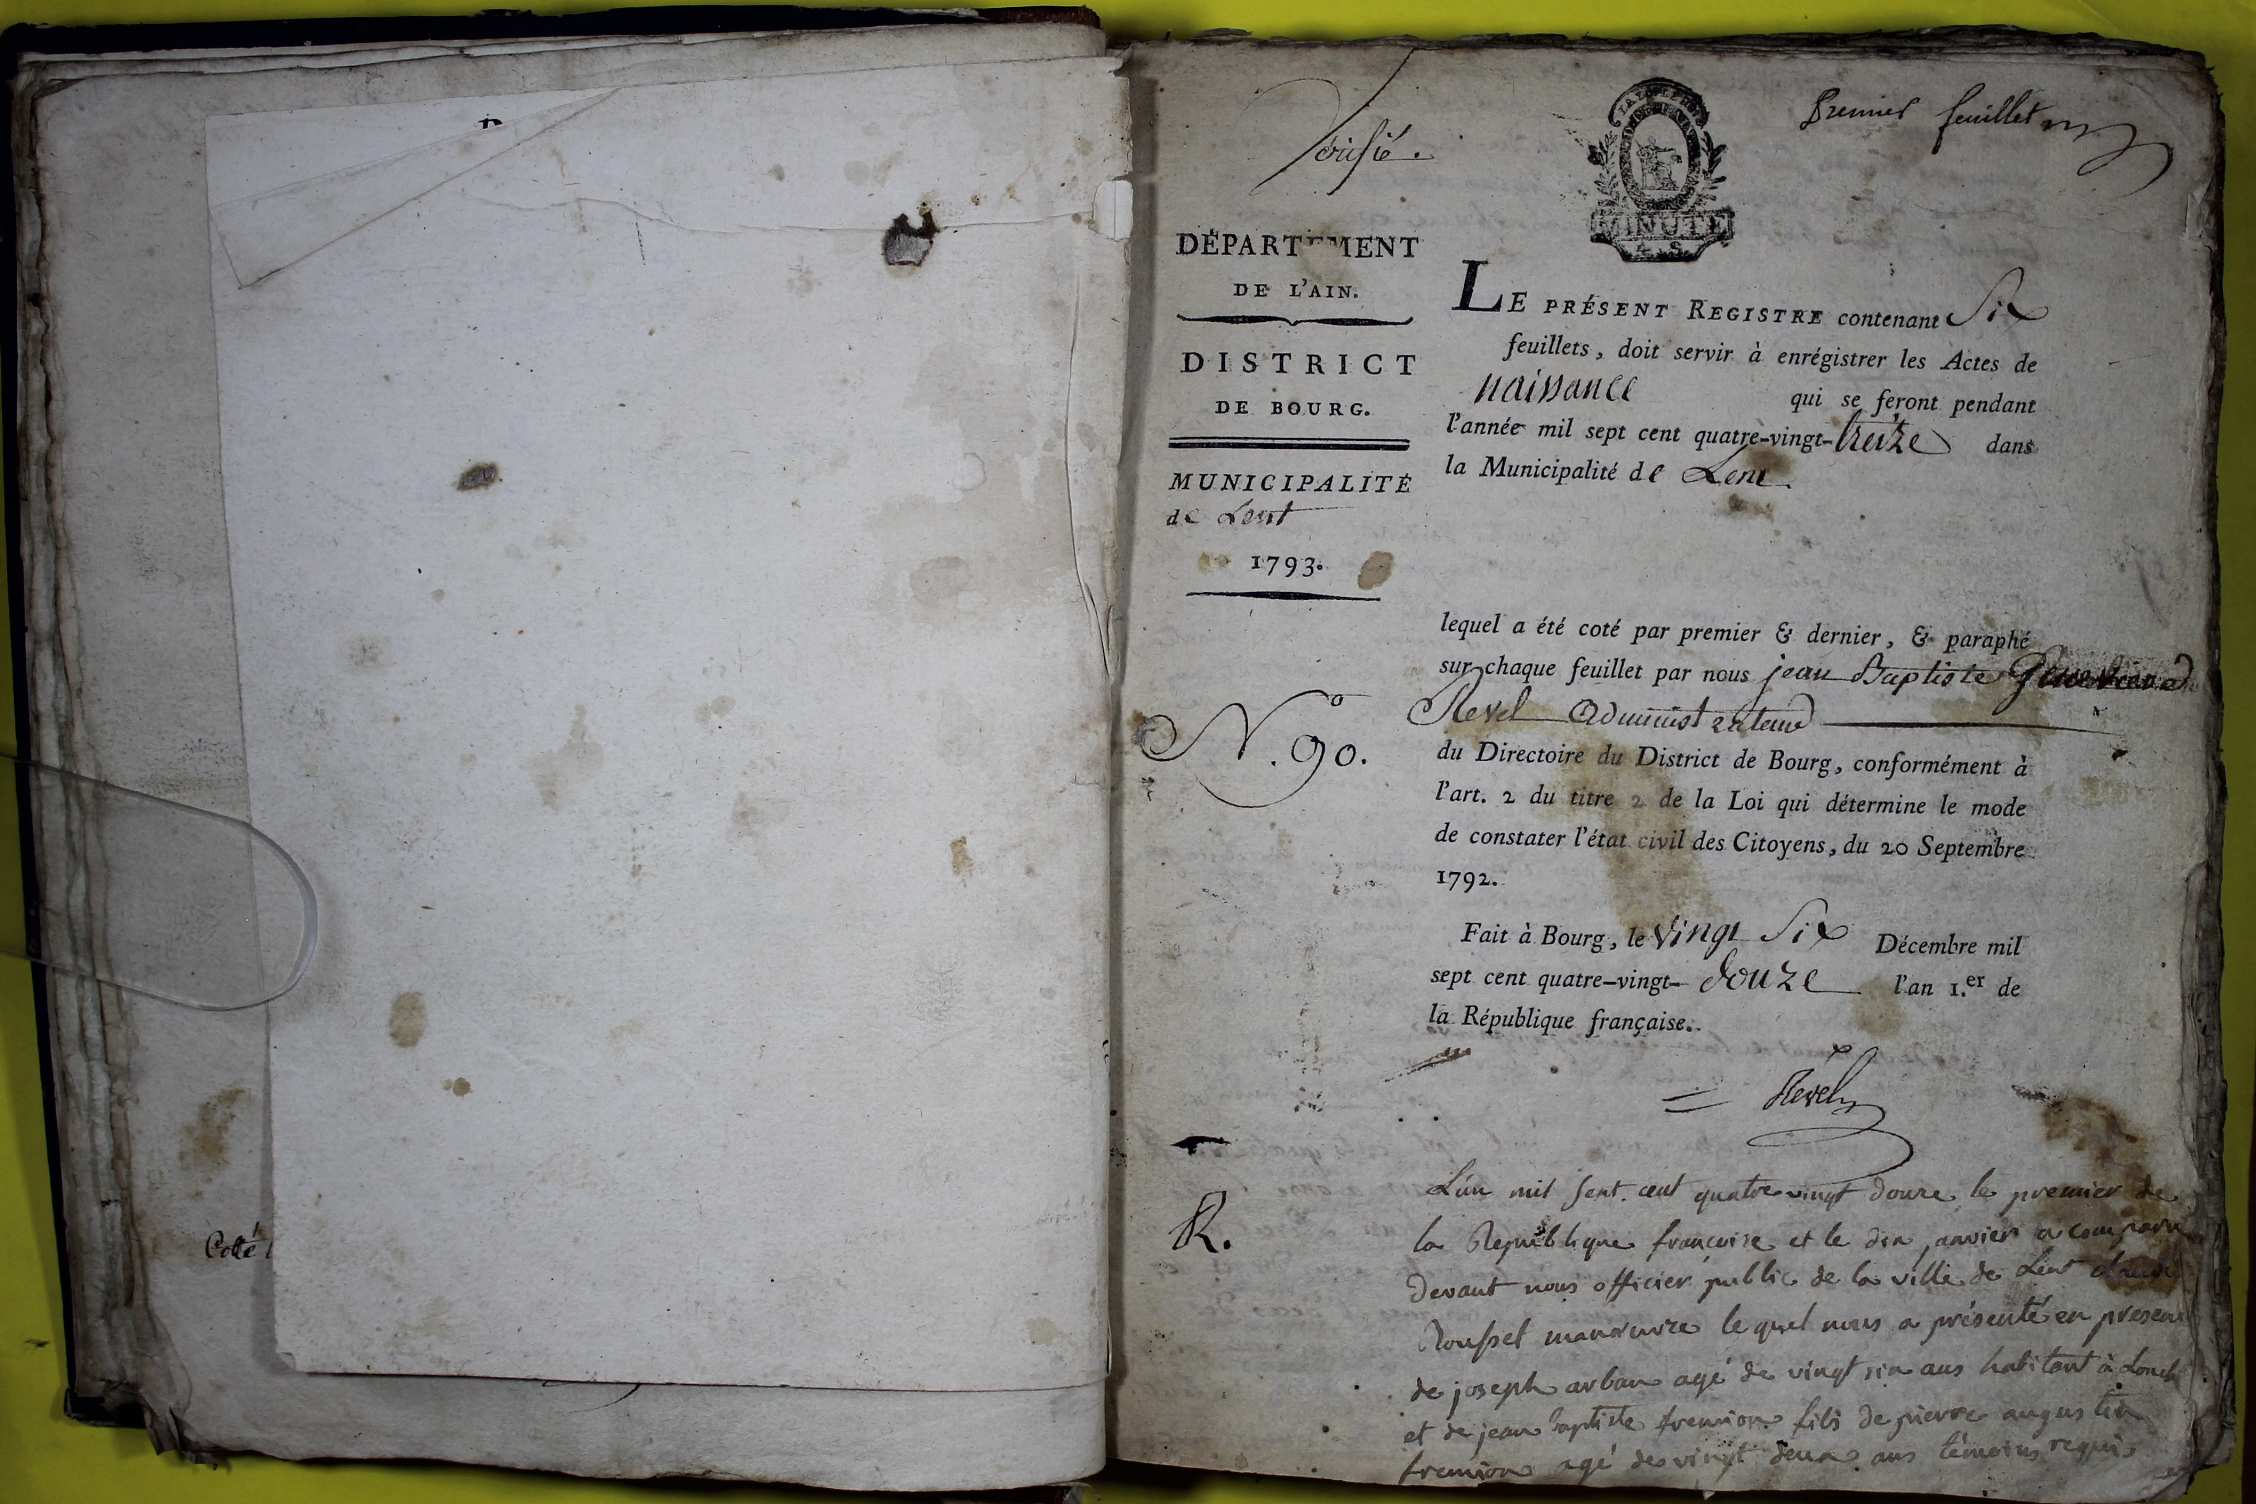 Cotté
Vérifié.
Premier feuillet
LA LOI LE ROI
MINUTE
4. S.
DÉPARTEMENT
DE L'AIN.
DISTRICT
DE BOURG.
MUNICIPALITÉ
de Lent
1793.
N.º 90.
LE PRÉSENT REGISTRE contenant Six
feuillets, doit servir à enrégistrer les Actes de
naissance qui se feront pendant
l'année mil sept cent quatre-vingt-treize dans
la Municipalité de Lent.
lequel a été coté par premier & dernier, & paraphé
sur chaque feuillet par nous jean Baptiste
Revel administrateur
du Directoire du District de Bourg, conformément à
l'art. 2 du titre 2 de la Loi qui détermine le mode
de constater l'état civil des Citoyens, du 20 Septembre
1792.
Fait à Bourg, le vingt Six Décembre mil
sept cent quatre-vingt-douze l'an 1.er de
la République française.
Revel
R.
L'an mil sept cent quatre vingt douze le premier de
la Republique francoise et le dix janvier a comparu
devant nous officier public de la ville de Lent
Roussel manoeuvre lequel nous a présenté en presence
de joseph arban agé de vingt six ans habitant à
et de jean baptiste fremion fils de pierre augustin
fremion agé de vingt deux ans témoins requis